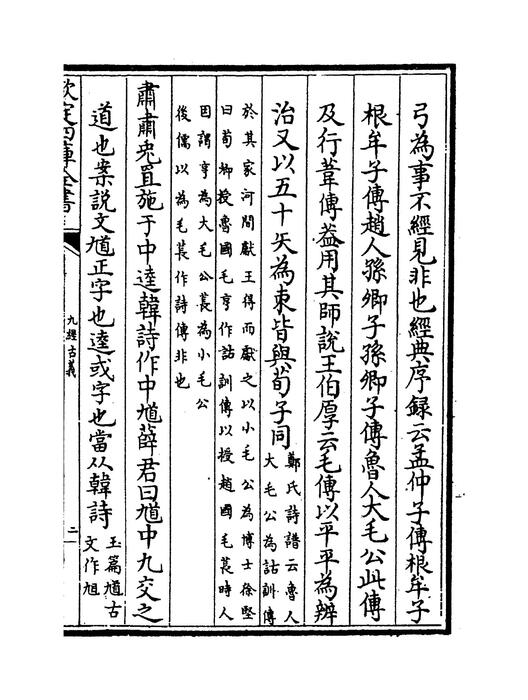 弓為事不經見非也經典序録云孟仲子傳根牟子
根牟子傳趙人孫卿子孫卿子傳魯人大毛公此傳
及行葦傳葢用其師説王伯厚云毛傳以平平為辨
治又以五十矢為束皆與荀子同
鄭氏詩譜云魯人
大毛公為詁訓傳
於其家河間獻王得而獻之以小毛公為博士徐堅
曰荀卿授魯國毛亨作詁訓傳以授趙國毛萇時人
因謂亨為大毛公萇為小毛公
後儒以為毛萇作詩傳非也
肅肅兔罝施于中逵韓詩作中馗薛君曰馗中九交之
道也案説文馗正字也逵或字也當从韓詩
玉篇馗古
文作
欽定四庫全書
九經古義
二